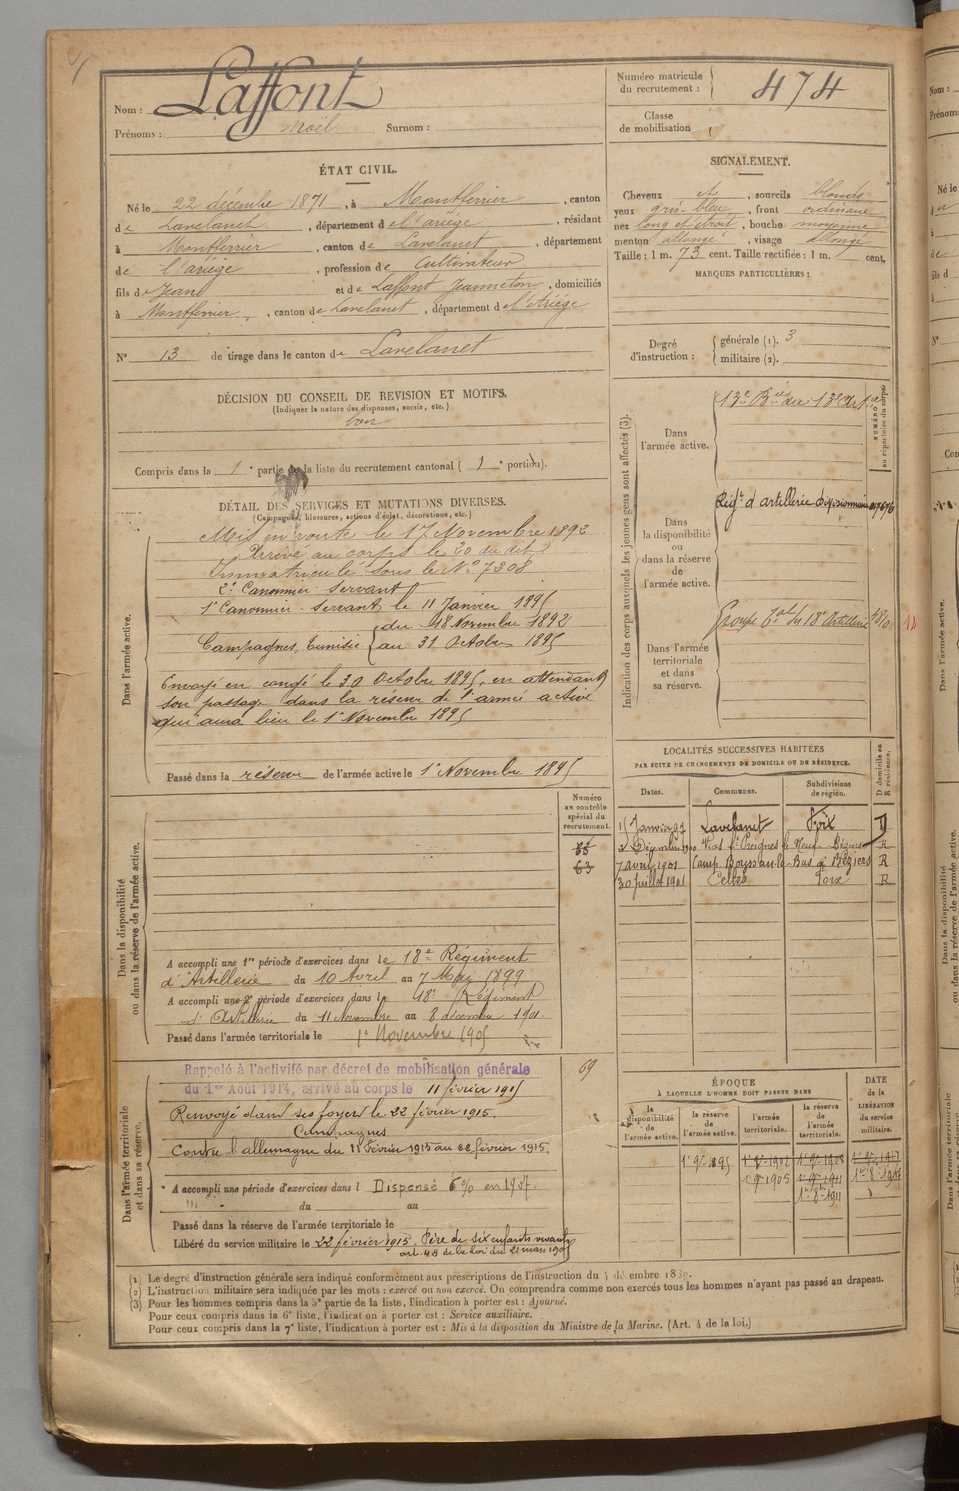 Nom : Laffont
Prénoms : Noël Surnom :
Numéro matricule du recrutement : 474
Classe de mobilisation
ÉTAT CIVIL.
Né le 22 décembre 1871, à Montferrier, canton
de Lavelanet, département de l'ariège, résidant
à Montferrier, canton de Lavelanet, département
de l'ariège, profession de Cultivateur
fils de Jean et de Laffont Jeanneton, domiciliés
à Montferrier, canton de Lavelanet, département de l'Ariège
N° 13 de tirage dans le canton de Lavelanet
SIGNALEMENT.
Cheveux et, sourcils blonds
yeux gris-bleu, front ordinaire
nez long et étroit, bouche moyenne
menton allongé, visage allongé
Taille : 1 m. 73 cent. Taille rectifiée : 1 m. cent.
MARQUES PARTICULIÈRES :
Degré d'instruction : générale (1). 3
militaire (2).
DÉCISION DU CONSEIL DE REVISION ET MOTIFS.
(Indiquer la nature des dispenses, sursis, etc.)
bon
Compris dans la 1e partie de la liste du recrutement cantonal ( 1e portion).
DÉTAIL DES SERVICES ET MUTATIONS DIVERSES.
(Campagnes, blessures, actions d'éclat, décorations, etc.)
Dans l'armée active.
Mis en route le 17 Novembre 1892
Arrivé au corps le 20 du dit
Immatriculé sous le N° 7208
2e Canonnier servant
1e Canonnier servant le 11 Janvier 1895
Campagnes, Tunisie du 18 Novembre 1892
au 31 Octobre 1895
Envoyé en congé le 30 Octobre 1895, en attendant
son passage dans la réserve de l'armée active
qui aura lieu le 1e Novembre 1895
Passé dans la réserve de l'armée active le 1e Novembre 1895
Indication des corps auxquels les jeunes gens sont affectés (3).
NUMÉRO au répertoire du corps
Dans l'armée active.
13e Bie du 13e Art
Dans la disponibilité ou dans la réserve de l'armée active.
Régt d'artillerie divisionnaire
Dans l'armée territoriale et dans sa réserve.
Groupe du 18e Artillerie
LOCALITÉS SUCCESSIVES HABITÉES
PAR SUITE DE CHANGEMENTS DE DOMICILE OU DE RÉSIDENCE.
Dates. Communes. Subdivisions de région. D domicile ou R résidence.
15 Janvier 97 Lavelanet Foix D
2 Décembre 1900 Béziers R
7 avril 1901 Béziers R
30 juillet 1901 Celles Foix R
Numéro au contrôle spécial du recrutement.
85
63
Dans la disponibilité ou dans la réserve de l'armée active.
A accompli une 1re période d'exercices dans le 18e Régiment
d'Artillerie du 10 Avril au 7 Mai 1899
A accompli une 2e période d'exercices dans le 18e Régiment
d'Artillerie du 11 Novembre au 8 décembre 1901
Passé dans l'armée territoriale le 1e Novembre 1905
Dans l'armée territoriale et dans sa réserve.
69
Rappelé à l'activité par décret de mobilisation générale
du 1er Août 1914, arrivé au corps le 11 février 1915
Renvoyé dans ses foyers le 22 février 1915.
Campagnes
Contre l'allemagne du 11 Février 1915 au 22 février 1915.
A accompli une période d'exercices dans l Dispensé 6% en 1907.
du au
Passé dans la réserve de l'armée territoriale le
Libéré du service militaire le 22 février 1915. Père de six enfants vivants
art. 48 de la loi du 21 mars 1905
ÉPOQUE
À LAQUELLE L'HOMME DOIT PASSER DANS
DATE de la LIBÉRATION du service militaire.
la disponibilité de l'armée active. la réserve de l'armée active. l'armée territoriale. la réserve de l'armée territoriale.
(1) Le degré d'instruction générale sera indiqué conformément aux prescriptions de l'instruction du 4 décembre 1889.
(2) L'instruction militaire sera indiquée par les mots : exercé ou non exercé. On comprendra comme non exercés tous les hommes n'ayant pas passé au drapeau.
(3) Pour les hommes compris dans la 5e partie de la liste, l'indication à porter est : Ajourné.
Pour ceux compris dans la 6e liste, l'indication à porter est : Service auxiliaire.
Pour ceux compris dans la 7e liste, l'indication à porter est : Mis à la disposition du Ministre de la Marine. (Art. 4 de la loi.)